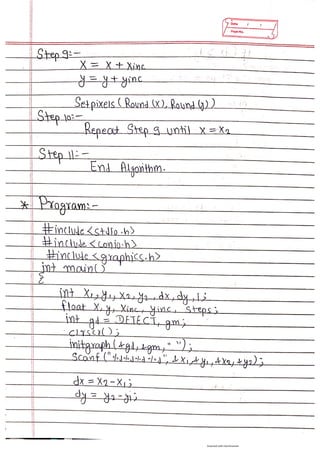 Date / /
Page No.
Step 9:-
X = X + Xinc
y = y + yinc
Setpixels ( Round (X), Round (y) )
Step 10:-
Repeat Step 9 until X = X2
Step 11:-
End Algorithm.
* Program:-
#include <stdio.h>
#include <conio.h>
#include <graphics.h>
int main()
{
int X1, y1, X2, y2, dx, dy, i;
float X, y, Xinc, yinc, Steps;
int gd = DETECT, gm;
clrscr();
initgraph (&gd, &gm, " ");
Scanf ("%d%d%d%d", &x1, &y1, &x2, &y2);
dx = X2 - X1;
dy = y2 - y1;